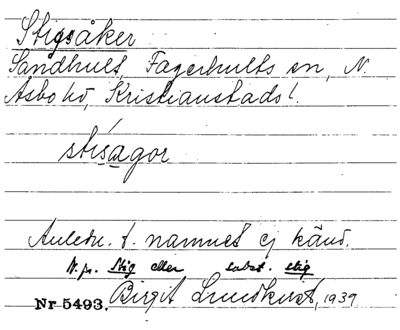 Stigsåker
Sandhult, Fagerhults sn, N.
Asbo hd, Kristianstads l.
stisagor
Anledn. t. namnet ej känd.
N. pr. Stig eller subst. stig
Nr 5493. Birgit Lundkvist, 1939